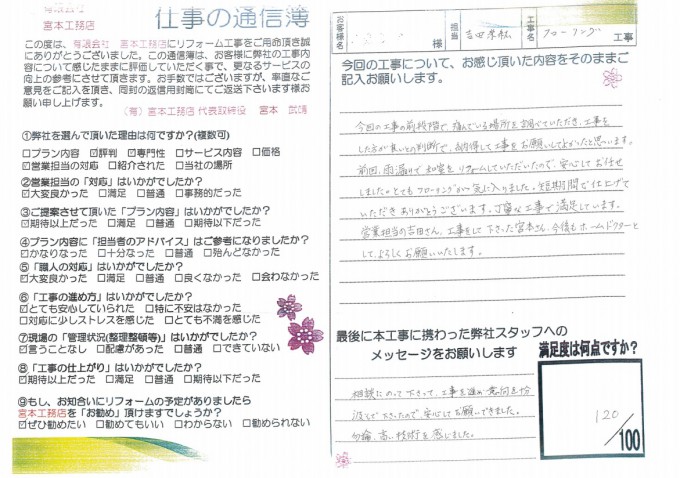 有限会社
宮本工務店
仕事の通信簿
この度は、有限会社 宮本工務店にリフォーム工事をご用命頂き誠
にありがとうございました。この通信簿は、お客様に弊社の工事内
容について感じたままに評価していただく事で、更なるサービスの
向上の参考にさせて頂きます。お手数ではございますが、率直なご
意見をご記入を頂き、同封の返信用封筒にてご返送下さいます様お
願い申し上げます。
(有)宮本工務店 代表取締役 宮本
①弊社を選んで頂いた理由は何ですか?(複数可)
□プラン内容 ☑評判 ☑専門性 □サービス内容 □価格
☑営業担当の対応 □紹介された □当社の場所
②営業担当の「対応」はいかがでしたか?
☑大変良かった □満足 □普通 □事務的だった
③ご提案させて頂いた「プラン内容」はいかがでしたか?
☑期待以上だった □満足 □普通 □期待以下だった
④プラン内容に「担当者のアドバイス」はご参考になりましたか?
☑かなりなった □十分なった □普通 □殆んどなかった
⑤「職人の対応」はいかがでしたか?
☑大変良かった □満足 □普通 □良くなかった □会わなかった
⑥「工事の進め方」はいかがでしたか?
☑とても安心していられた □特に不安はなかった
□対応に少しストレスを感じた □とても不満を感じた
⑦現場の「管理状況(整理整頓等)」はいかがでしたか?
☑言うことなし □配慮があった □普通 □できていない
⑧「工事の仕上がり」はいかがでしたか?
☑期待以上だった □満足 □普通 □期待以下だった
⑨もし、お知合いにリフォームの予定がありましたら
宮本工務店を「お勧め」頂けますでしょうか?
☑ぜひ勧めたい □勧めてもいい □わからない □勧められない
お客様名 様 担当 吉田 工事名 フローリング 工事
今回の工事について、お感じ頂いた内容をそのままご
記入お願いします。
今回の工事の前段階で、痛んでいる場所を調べていただき、工事を
した方が良いとの判断で、納得して工事をお願いしてよかったと思います。
前回、雨漏りで和室をリフォームしていただいたので、安心してお任せ
しました。とてもフローリングが気に入りました。短期間で仕上げて
いただきありがとうございます。丁寧な工事で満足しています。
営業担当の吉田さん、工事をして下さった宮本さん、今後もホームドクターと
して、よろしくお願いいたします。
最後に本工事に携わった弊社スタッフへの
メッセージをお願いします
相談にのって下さって、工事を進め意向を
下さったので安心してお願いできました。
勿論、高い技術を感じました。
満足度は何点ですか?
120
/100